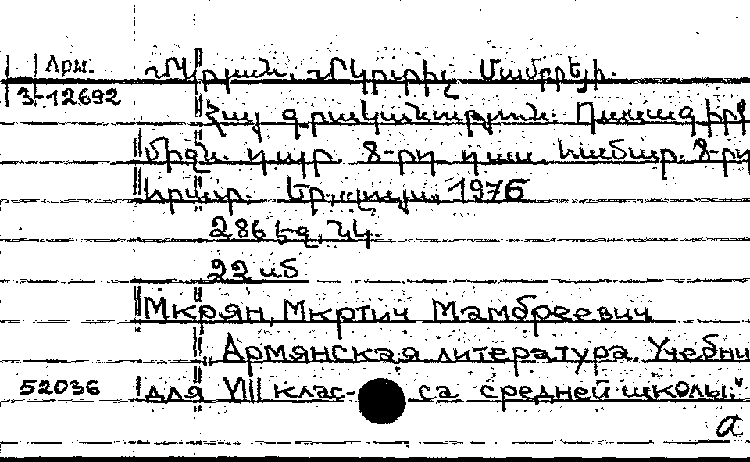 Арм.
Մկրյան, Մկրտիչ Մամբրեյի.
3-12692
Հայ գրականություն: Դասագիրք
միջն. դպր. 8-րդ դաս. համար. 8-րդ
հրատ. Եր., Լույս, 1976
286 էջ, նկ.
22 սմ
Мкрян, Мкртич Мамбреевич
Армянская литература. Учебни
52036 для VIII клас- са средней школы."
a